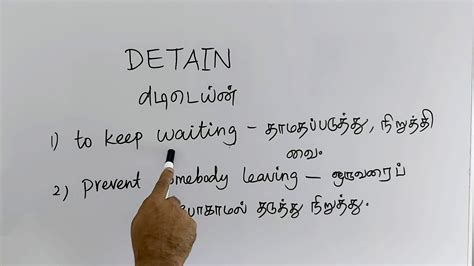 DETAIN
டிடெய்ன்
1) to keep waiting – தாமதப்படுத்து, நிறுத்தி
வை.
2) Prevent somebody leaving – ஒருவரைப்
போகாமல் தடுத்து நிறுத்து.